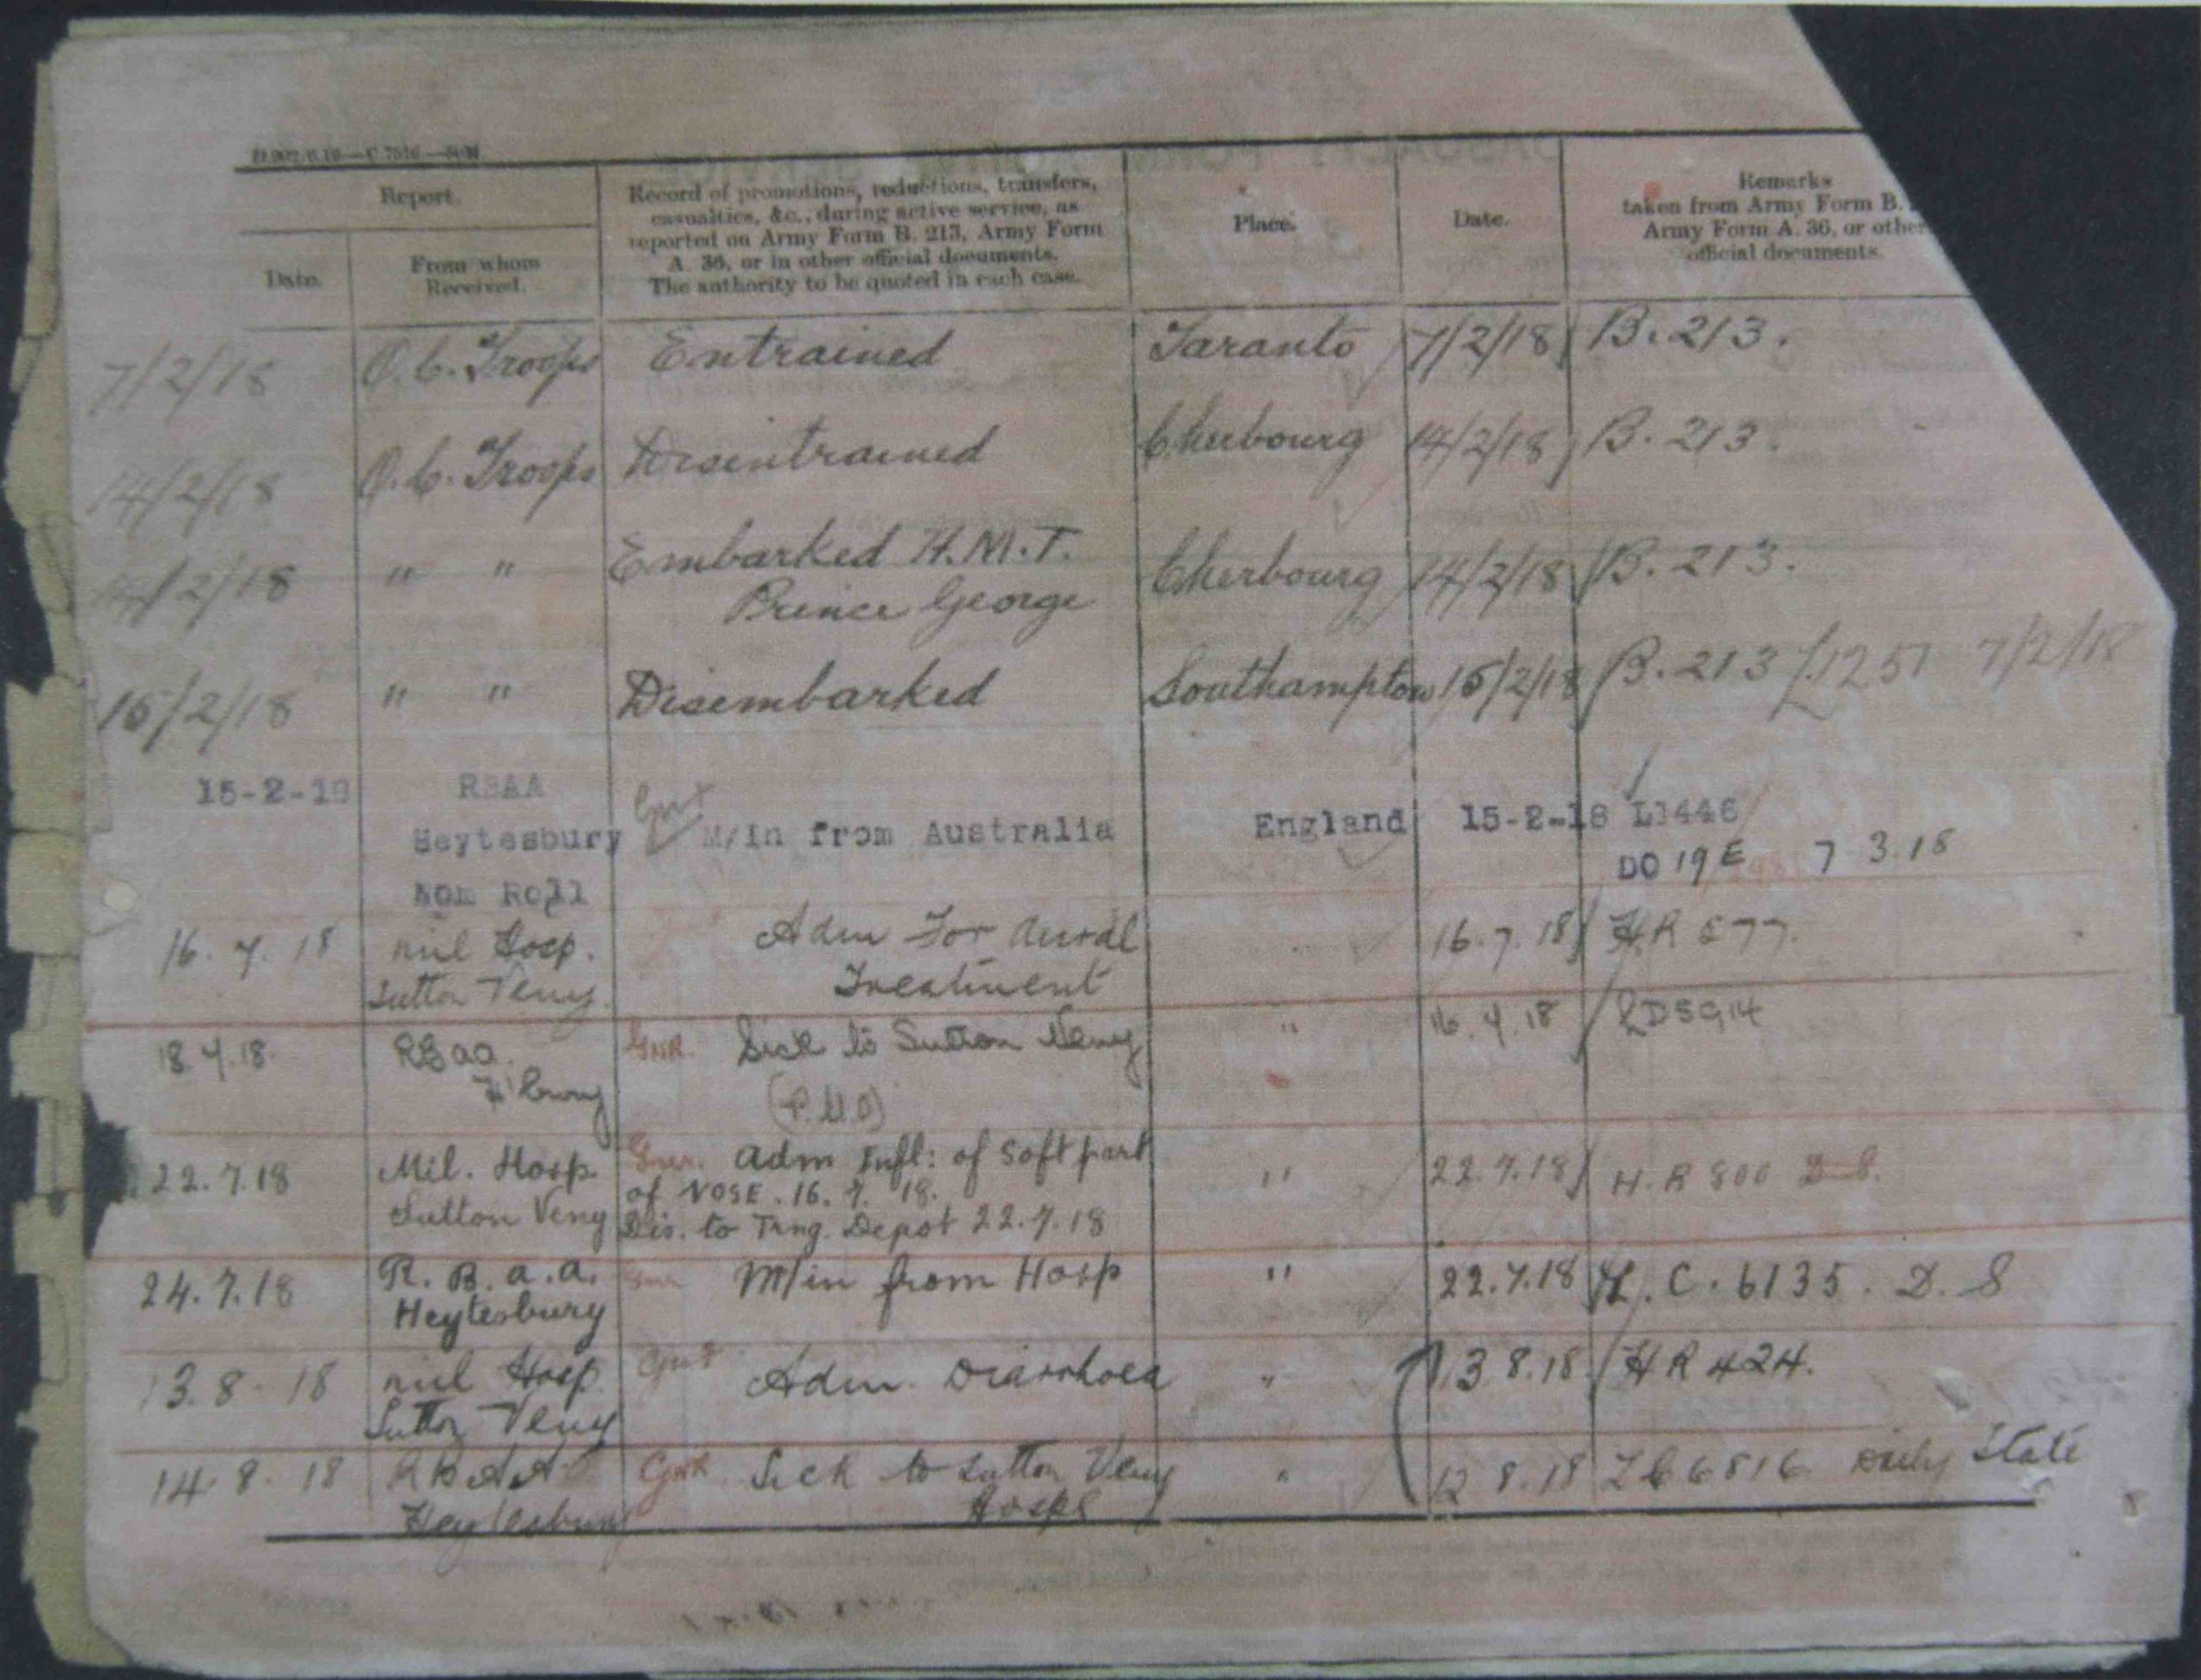 Report.
Record of promotions, reductions, transfers,
casualties, &c., during active service, as
reported on Army Form B. 213, Army Form
A. 36, or in other official documents.
The authority to be quoted in each case.
Place.
Date.
Remarks
taken from Army Form B.
Army Form A. 36, or other
official documents.
Date.
From whom
Received.
7/2/18 O.C. Troops Entrained Taranto 7/2/18 B. 213.
14/2/18 O.C. Troops Disentrained Cherbourg 14/2/18 B. 213.
14/2/18 " " Embarked H.M.T. Cherbourg 14/2/18 B. 213.
Prince George
15/2/18 " " Disembarked Southampton 15/2/18 B. 213 L1251 7/2/18
15-2-18 RBAA
Heytesbury M/In from Australia England 15-2-18 L1446
Nom Roll DO 19 E 7 3.18
16. 7. 18 Mil Hosp. Adm For Aural 16.7.18 HR 577.
Sutton Veny. Treatment
18.7.18. RBAA GNR. Sick to Sutton Veny " 16.7.18 LD5914
H'bury (P.U.O)
22.7.18 Mil. Hosp. Gnr. adm Infl: of Soft part " 22.7.18 H.R 800 D.S.
Sutton Veny of NOSE. 16. 7. 18.
Dis. to Trng. Depot 22.7.18
24.7.18 R. B. a. a. Gnr M/in from Hosp " 22.7.18 L. C. 6135. D. S
Heytesbury
13. 8. 18 Mil Hosp. Gnr Adm. Diarrhoea " 13 8.18 HR 424.
Sutton Veny
14. 8. 18 RBAA GNR Sick to Sutton Veny " 12 8.18 LC 6816 Daily State
Heytesbury Hospl